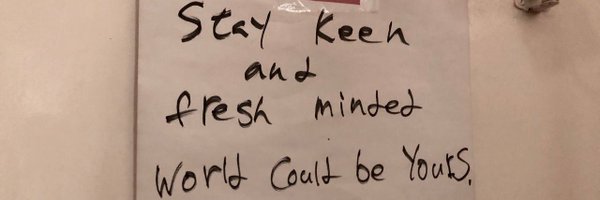 Stay keen
and
fresh minded
World Could be Yours.